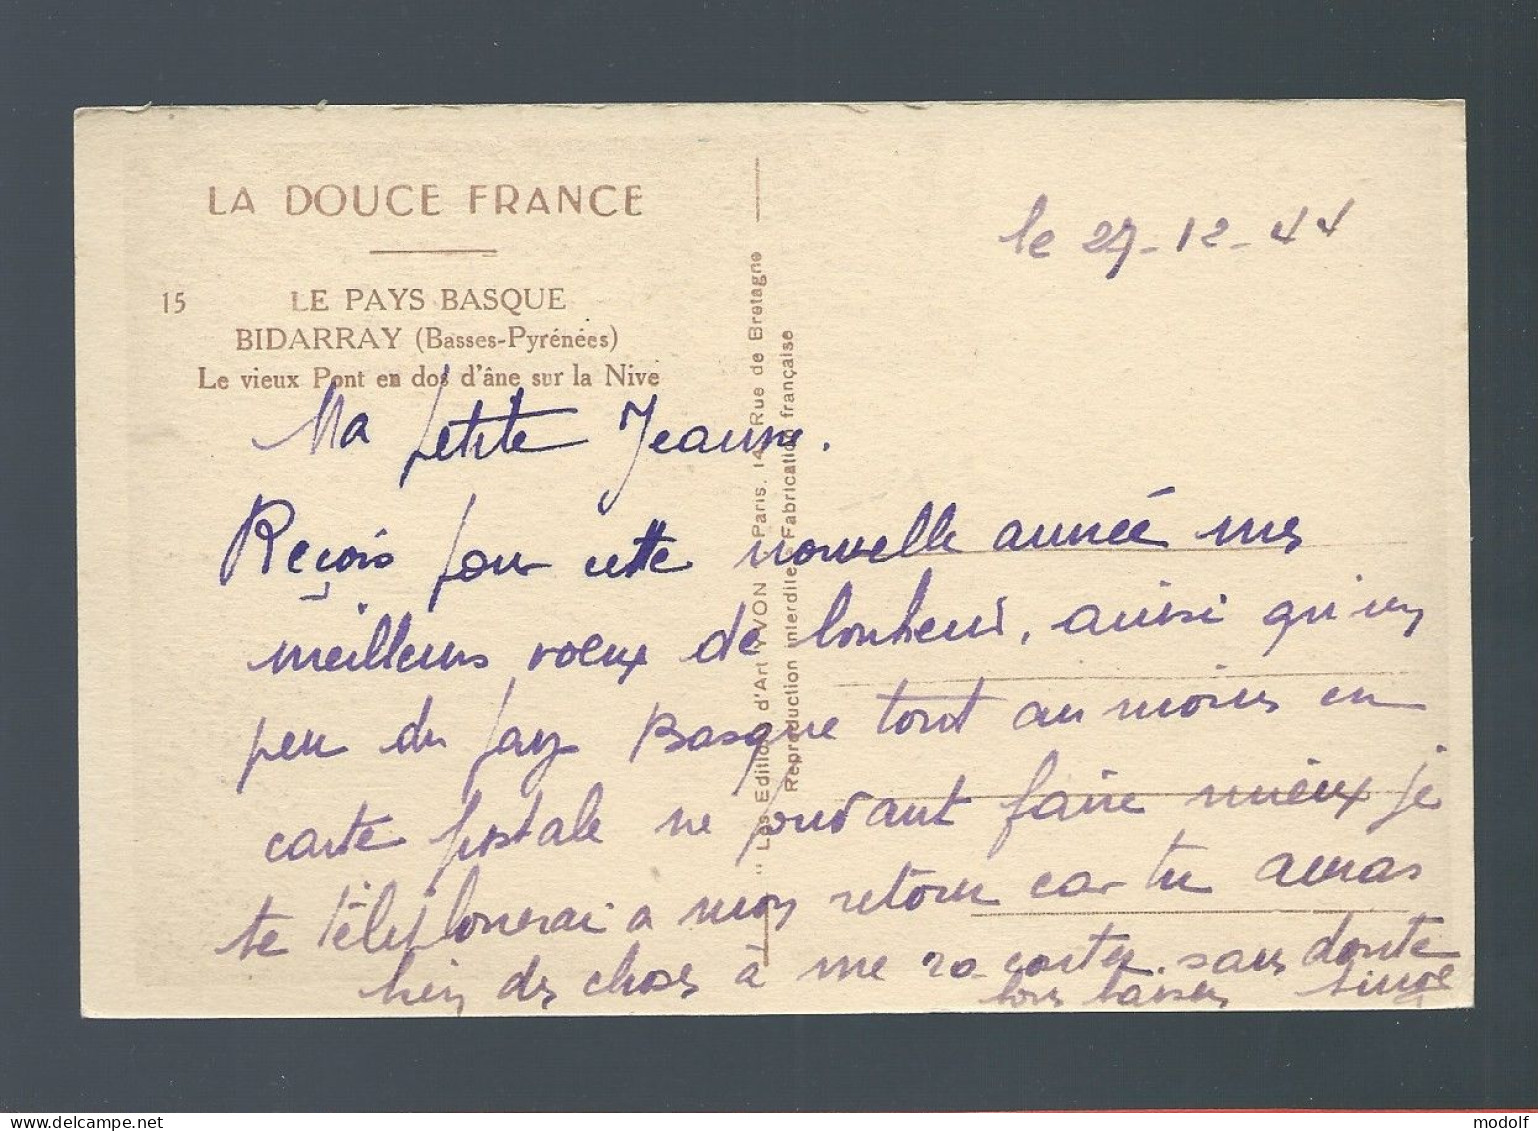 LA DOUCE FRANCE
15 LE PAYS BASQUE
BIDARRAY (Basses-Pyrénées)
Le vieux Pont en dos d'âne sur la Nive
" Les Editions d'Art YVON " Paris. 14, Rue de Bretagne
Reproduction interdite - Fabrication française
le 27-12-44
Ma petite Jeanne.
Reçois pour cette nouvelle année mes
meilleurs voeux de bonheur, ainsi qu'un
peu du pays Basque tout au moins en
carte postale ne pouvant faire mieux je
te téléphonerai a mon retour car tu auras
bien des choses à me raconter. sans doute
bons baisers Simone
delcampe.net
modolf